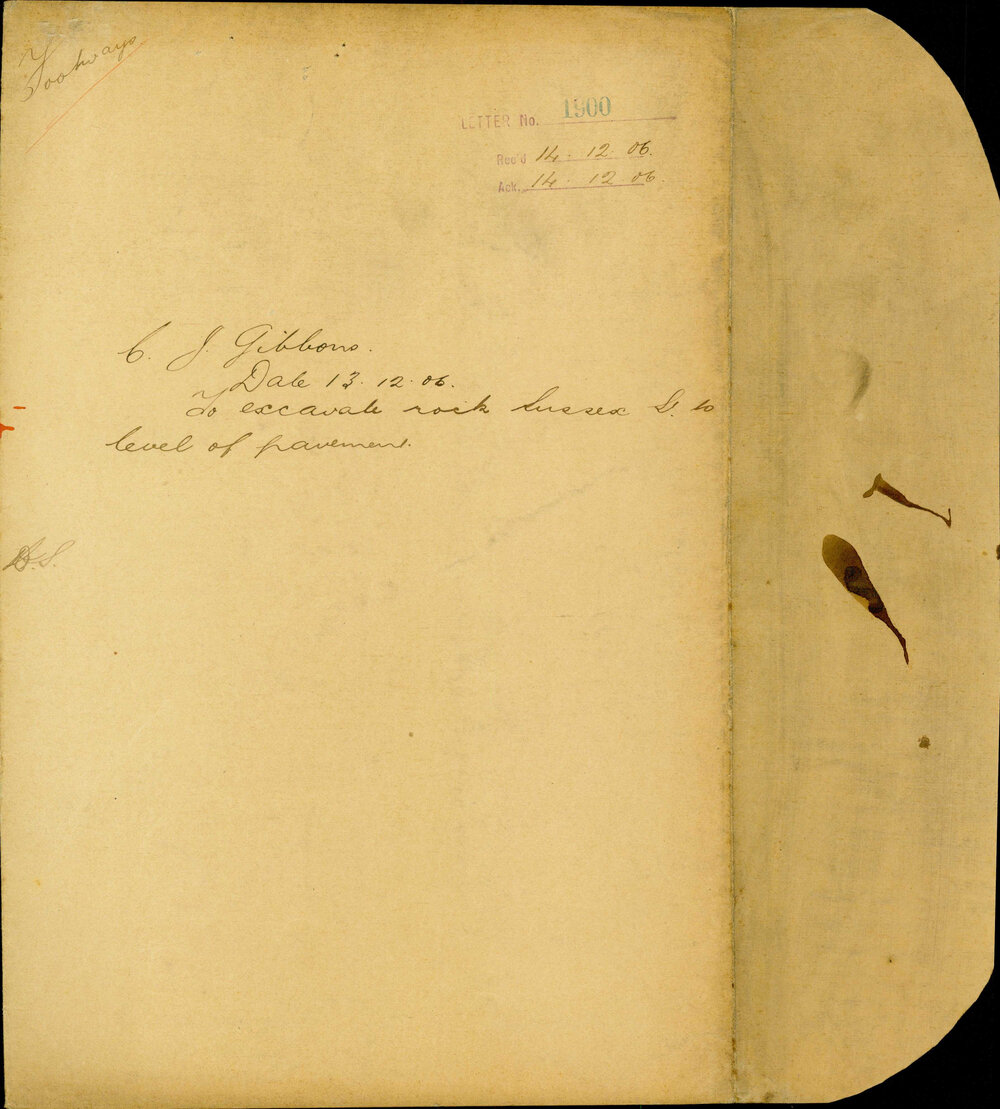 Footways
LETTER No. 1900
Rec'd 14. 12. 06.
Ack. 14. 12 06.
C. J. Gibbons.
Date 13. 12. 06.
To excavate rock Sussex St. to
level of pavement.